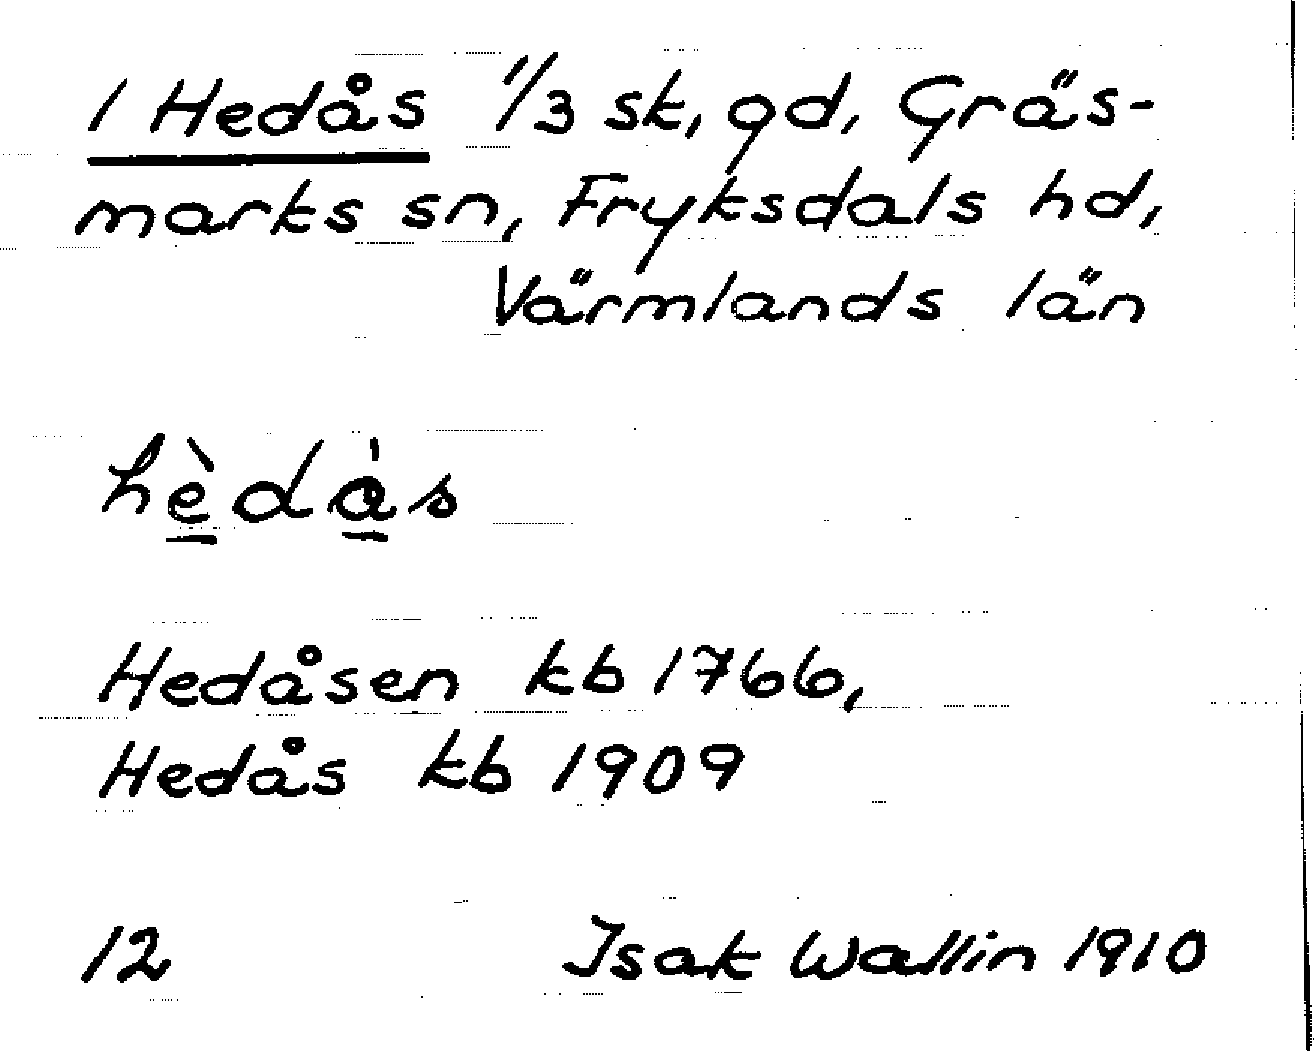 1 Hedås 1/3 sk, gd, Gräs-
marks sn, Fryksdals hd,
Värmlands län
hèdås
Hedåsen kb 1766,
Hedås kb 1909
12 Isak Wallin 1910